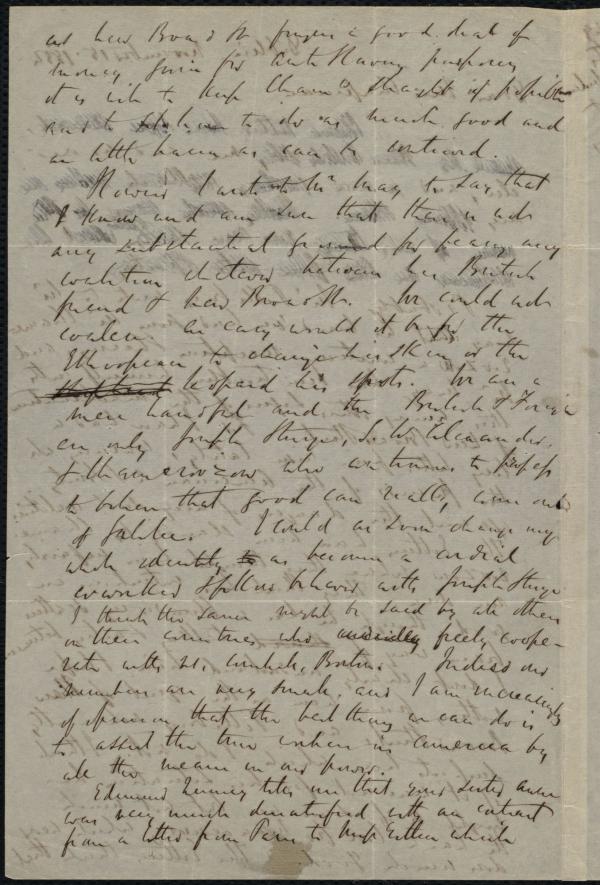 as New Broad St fingers a good deal of
money given for anti slavery purposes
it is well to keep Cham straight if possible
and to to do as much good and
as little harm as can be contrived.
However I want to Mr May to say that
I know and am sure that there is not
any substantial ground for fearing any
coalition whatever between his British
friend & New Broad St. We could not
coalesce. As easy would it be for the
Ethiopian to change his skin or the
leopard his spots. We are a
mere handful and the British & Foreign
are only Joseph Sturge, G. W. Alexander,
& Chamerovzow who continues to profess
to believe that good can really come out
of Galilee. I could as soon change my
whole identity as become a cordial
coworker & fellow believer with Joseph Sturge
I think the same might be said by all others
in these countries who freely coope-
rate with 21, Cornhill, Boston. Indeed our
numbers are very small, and I am increasingly
of opinion that the best thing we can do is
to assist the true workers in America by
all the means in our power.
Edmund Quincy tells me that your sister Anne
was very much dissatisfied with an extract
from a letter from Paris to Miss Estlin which